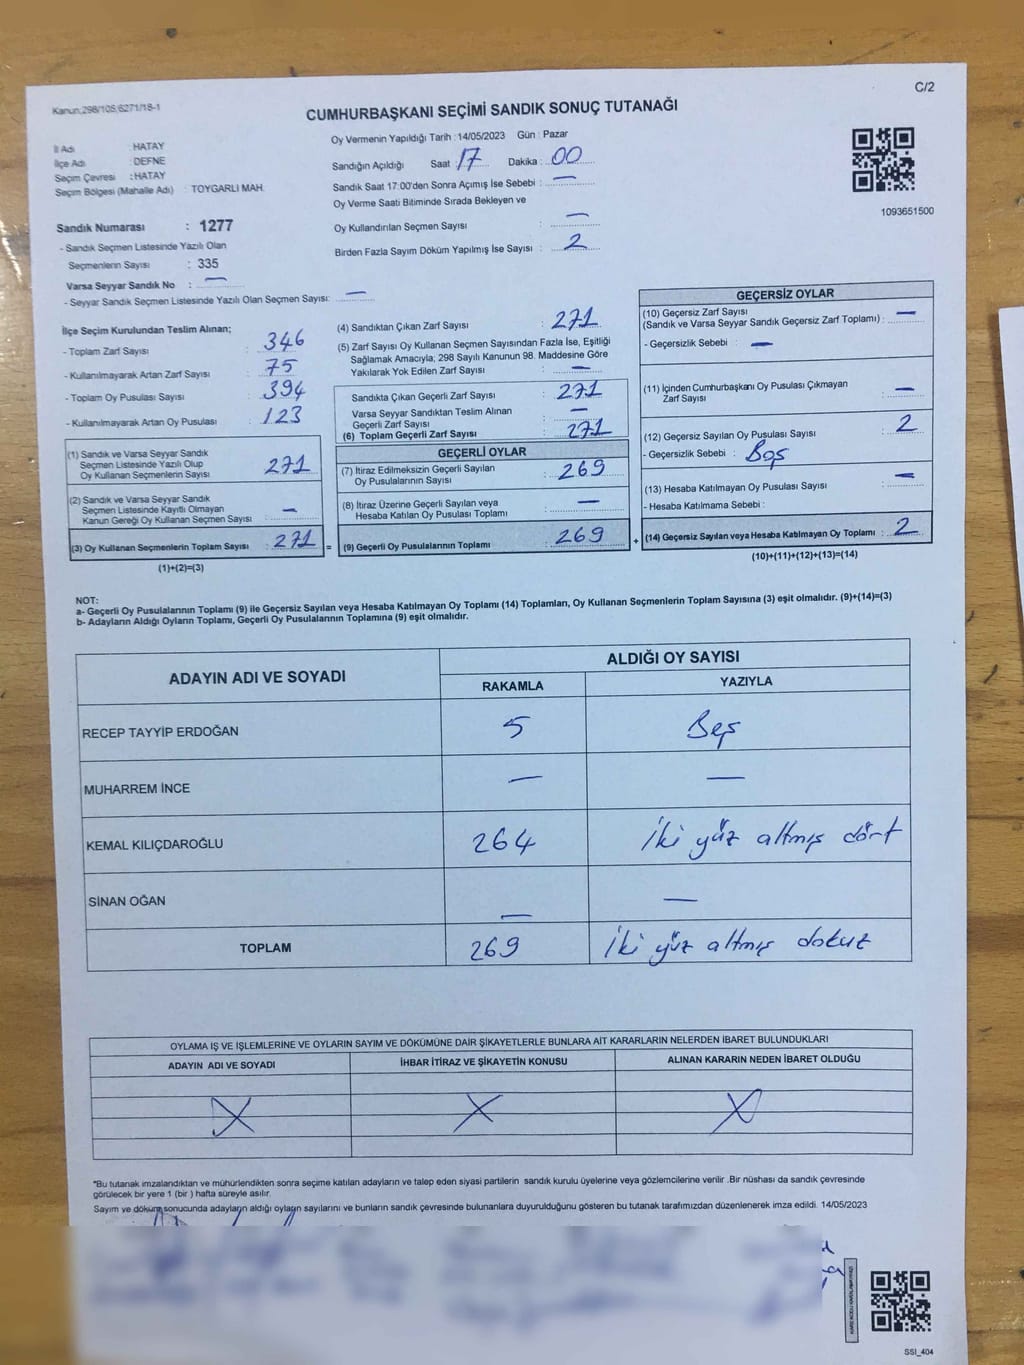 C/2
Kanun:298/105,6271/18-1
CUMHURBAŞKANI SEÇİMİ SANDIK SONUÇ TUTANAĞI
İl Adı : HATAY
İlçe Adı : DEFNE
Seçim Çevresi : HATAY
Seçim Bölgesi (Mahalle Adı) : TOYGARLI MAH.
Oy Vermenin Yapıldığı Tarih : 14/05/2023 Gün : Pazar
Sandığın Açıldığı Saat : 17 Dakika : 00
Sandık Saat 17:00'den Sonra Açımış İse Sebebi : —
Oy Verme Saati Bitiminde Sırada Bekleyen ve
Oy Kullandırılan Seçmen Sayısı : —
Birden Fazla Sayım Döküm Yapılmış İse Sayısı : 2
1093651500
Sandık Numarası : 1277
- Sandık Seçmen Listesinde Yazılı Olan
Seçmenlerin Sayısı : 335
Varsa Seyyar Sandık No : —
- Seyyar Sandık Seçmen Listesinde Yazılı Olan Seçmen Sayısı: —
İlçe Seçim Kurulundan Teslim Alınan;
- Toplam Zarf Sayısı : 346
- Kullanılmayarak Artan Zarf Sayısı : 75
- Toplam Oy Pusulası Sayısı : 394
- Kullanılmayarak Artan Oy Pusulası : 123
(1) Sandık ve Varsa Seyyar Sandık
Seçmen Listesinde Yazılı Olup
Oy Kullanan Seçmenlerin Sayısı : 271
(2) Sandık ve Varsa Seyyar Sandık
Seçmen Listesinde Kayıtlı Olmayan
Kanun Gereği Oy Kullanan Seçmen Sayısı : —
(3) Oy Kullanan Seçmenlerin Toplam Sayısı : 271
(1)+(2)=(3)
(4) Sandıktan Çıkan Zarf Sayısı : 271
(5) Zarf Sayısı Oy Kullanan Seçmen Sayısından Fazla İse, Eşitliği
Sağlamak Amacıyla; 298 Sayılı Kanunun 98. Maddesine Göre
Yakılarak Yok Edilen Zarf Sayısı : —
Sandıkta Çıkan Geçerli Zarf Sayısı : 271
Varsa Seyyar Sandıktan Teslim Alınan
Geçerli Zarf Sayısı : —
(6) Toplam Geçerli Zarf Sayısı : 271
GEÇERLİ OYLAR
(7) İtiraz Edilmeksizin Geçerli Sayılan
Oy Pusulalarının Sayısı : 269
(8) İtiraz Üzerine Geçerli Sayılan veya
Hesaba Katılan Oy Pusulası Toplamı : —
= (9) Geçerli Oy Pusulalarının Toplamı : 269
GEÇERSİZ OYLAR
(10) Geçersiz Zarf Sayısı
(Sandık ve Varsa Seyyar Sandık Geçersiz Zarf Toplamı) : —
- Geçersizlik Sebebi : —
(11) İçinden Cumhurbaşkanı Oy Pusulası Çıkmayan
Zarf Sayısı : —
(12) Geçersiz Sayılan Oy Pusulası Sayısı : 2
- Geçersizlik Sebebi : Boş
(13) Hesaba Katılmayan Oy Pusulası Sayısı : —
- Hesaba Katılmama Sebebi :
+ (14) Geçersiz Sayılan veya Hesaba Katılmayan Oy Toplamı : 2
(10)+(11)+(12)+(13)=(14)
NOT:
a- Geçerli Oy Pusulalarının Toplamı (9) ile Geçersiz Sayılan veya Hesaba Katılmayan Oy Toplamı (14) Toplamları, Oy Kullanan Seçmenlerin Toplam Sayısına (3) eşit olmalıdır. (9)+(14)=(3)
b- Adayların Aldığı Oyların Toplamı, Geçerli Oy Pusulalarının Toplamına (9) eşit olmalıdır.
ADAYIN ADI VE SOYADI
ALDIĞI OY SAYISI
RAKAMLA YAZIYLA
RECEP TAYYİP ERDOĞAN 5 Beş
MUHARREM İNCE — —
KEMAL KILIÇDAROĞLU 264 İki yüz altmış dört
SİNAN OĞAN — —
TOPLAM 269 İki yüz altmış dokuz
OYLAMA İŞ VE İŞLEMLERİNE VE OYLARIN SAYIM VE DÖKÜMÜNE DAİR ŞİKAYETLERLE BUNLARA AİT KARARLARIN NELERDEN İBARET BULUNDUKLARI
ADAYIN ADI VE SOYADI İHBAR İTİRAZ VE ŞİKAYETİN KONUSU ALINAN KARARIN NEDEN İBARET OLDUĞU
X X X
*Bu tutanak imzalandıktan ve mühürlendikten sonra seçime katılan adayların ve talep eden siyasi partilerin sandık kurulu üyelerine veya gözlemcilerine verilir .Bir nüshası da sandık çevresinde
görülecek bir yere 1 (bir ) hafta süreyle asılır.
Sayım ve döküm sonucunda adayların aldığı oyların sayılarını ve bunların sandık çevresinde bulunanlara duyurulduğunu gösteren bu tutanak tarafımızdan düzenlenerek imza edildi. 14/05/2023
SSI_404